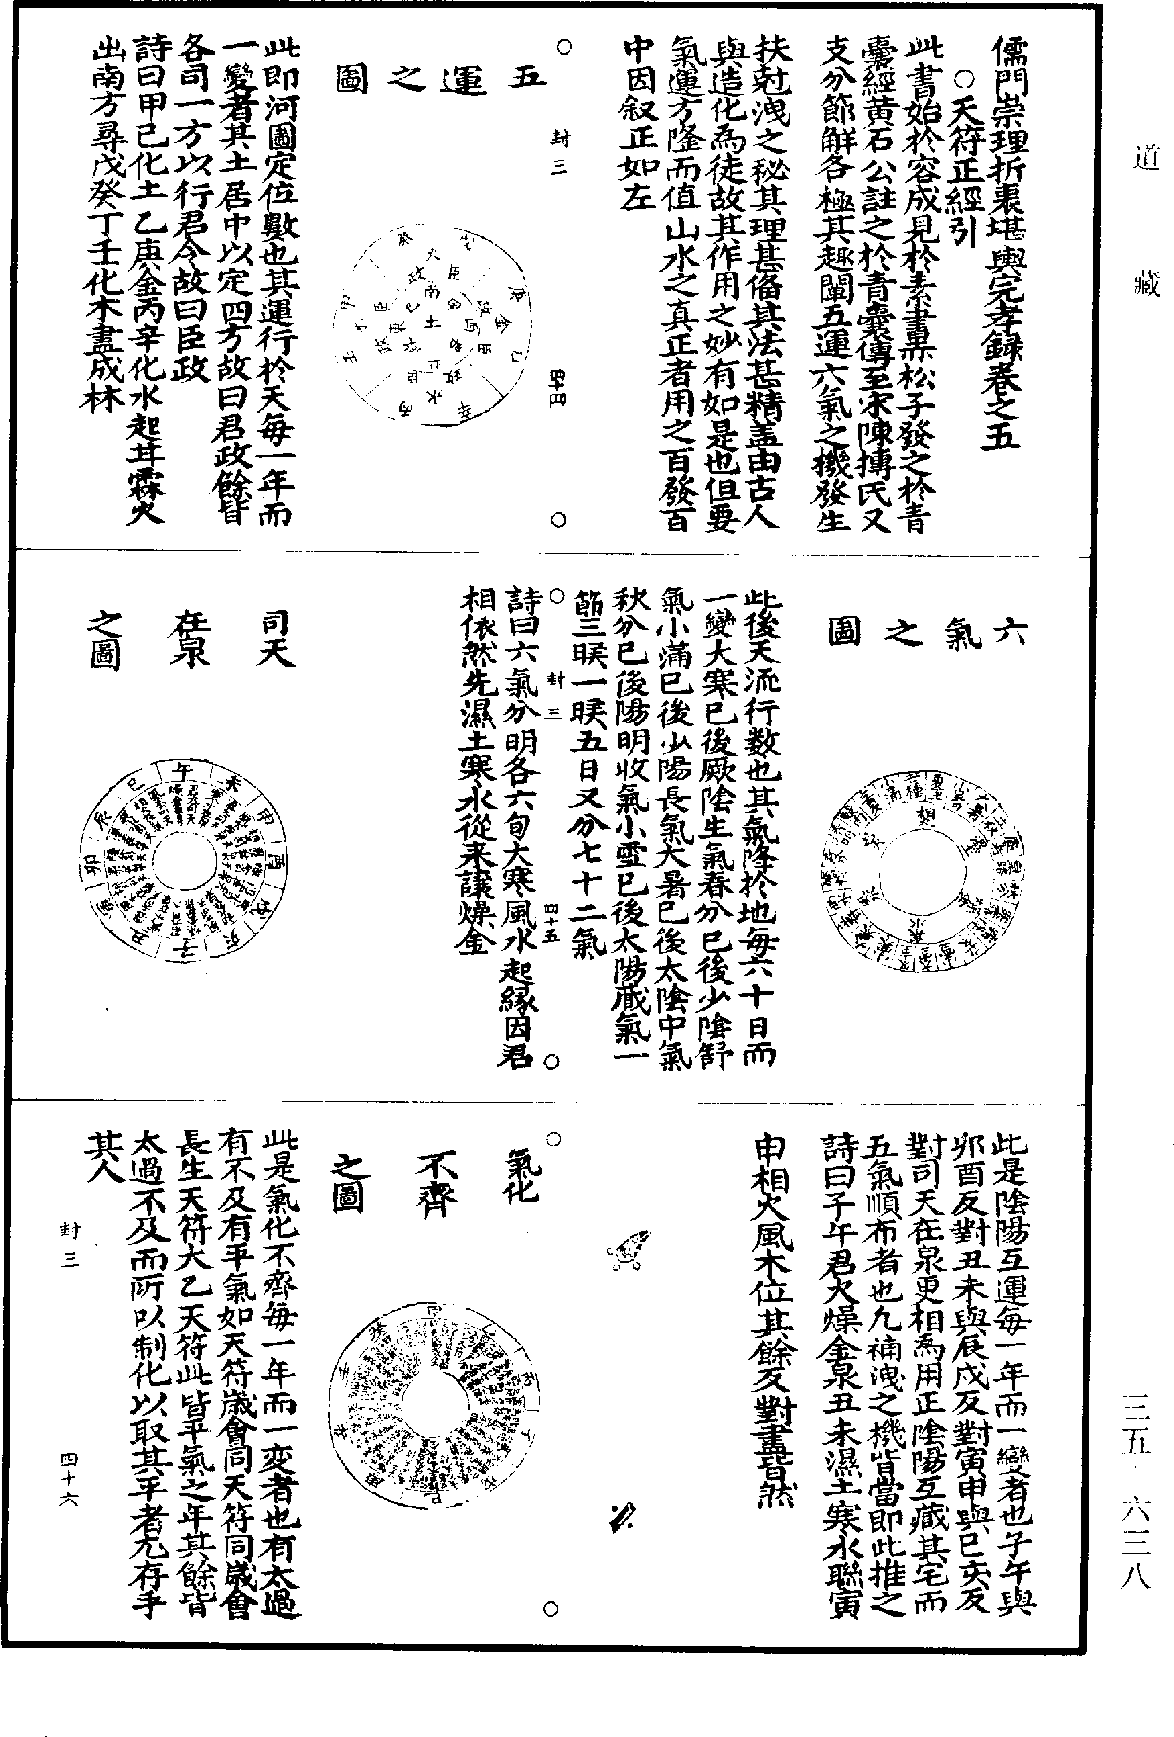 道藏
三五·六三八
儒門崇理折衷堪輿完孝録卷之五
○天符正經引
此書始於容成見於素書果松子發之於青
囊經黄石公註之於青囊傳至宋陳摶氏又
支分節解各極其趣闡五運六氣之機發生
扶尅洩之秘其理甚俻其法甚精盖由古人
與造化為徒故其作用之妙有如是也但要
氣運方隆而值山水之真正者用之百發百
中因叙正如左
封三
四十四
五運之圖
此即河圖定位數也其運行於天每一年而
一變者其土居中以定四方故曰君政餘皆
各司一方以行君令故曰臣政
詩曰甲己化土乙庚金丙辛化水起其霖火
出南方尋戊癸丁壬化木盡成林
六氣之圖
此後天流行数也其氣降於地每六十日而
一變大寒已後厥陰生氣春分已後少陰舒
氣小滿已後少陽長氣大暑已後太陰中氣
秋分已後陽明收氣小雪已後太陽藏氣一
節三睺一睺五日又分七十二氣
封三
四十五
詩曰六氣分明各六旬大寒風水起緣因君
相依然先濕土寒水從來讓燥金
司天
在泉
之圖
午
未
申
酉
戌
亥
子
丑
寅
卯
辰
巳
此是陰陽互運每一年而一變者也子午與
卯酉反對丑未與辰戌反對寅申與巳亥反
對司天在泉更相為用正陰陽互藏其宅而
五氣順布者也凢補洩之機皆當即此推之
詩曰子午君火燥金泉丑未濕土寒水聯寅
申相火風木位其餘反對盡皆然
氣化
不齊
之圖
此是氣化不齊每一年而一変者也有太過
有不及有平氣如天符歲會同天符同歲會
長生天符大乙天符此皆平氣之年其餘皆
太過不及而所以制化以取其平者尤存乎
其人
封三
四十六